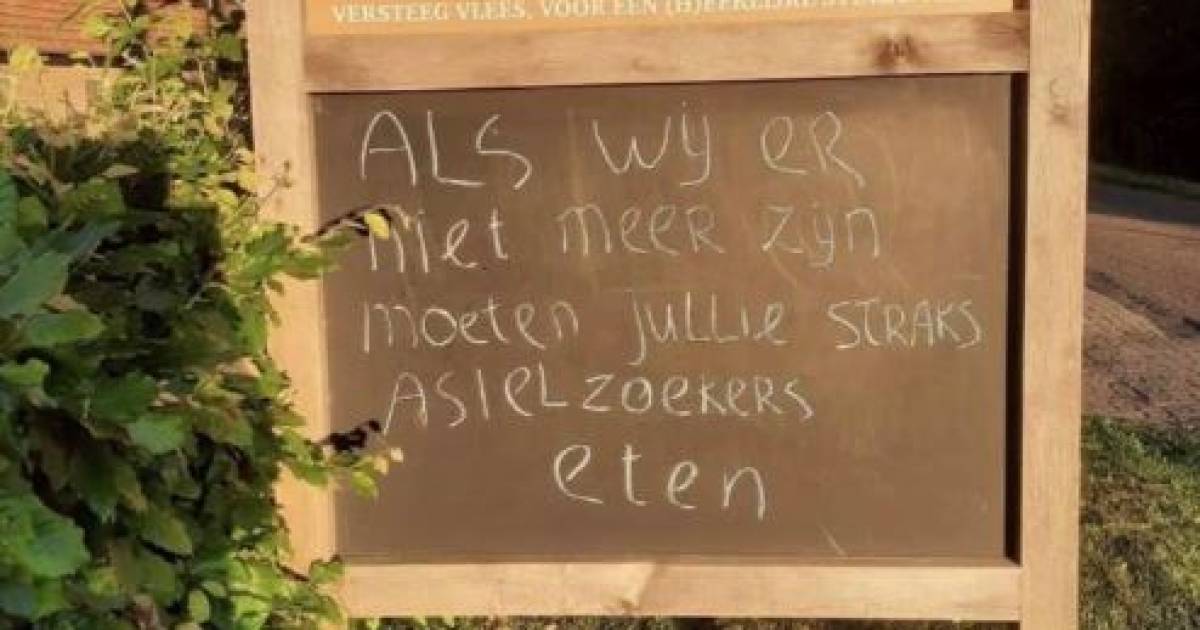 VERSTEEG VLEES, VOOR EEN (H)EERLIJKE
ALS WIJ ER
niet meer zijn
moeten jullie STRAKS
ASIELZOEKERS
eten